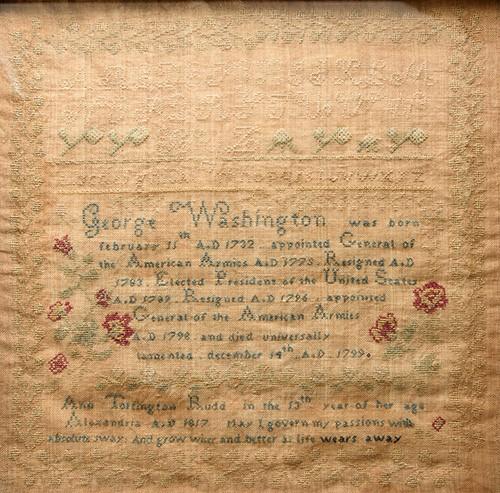 K L M
Z
George Washington was born
february 11th A.D 1732 . appointed General of
the American Armies A.D 1775 . Resigned A.D
1783 . Elected President of the United States
A.D 1789 . Resigned A.D 1796 . appointed
General of the American Armies
A.D 1798 . and died universally
lamented . december 14th A.D . 1799 .
Ann Torrington Rudd in the 13th year of her age
Alexandria A.D 1817 May I govern my passions with
absolute sway. And grow wiser and better as life wears away